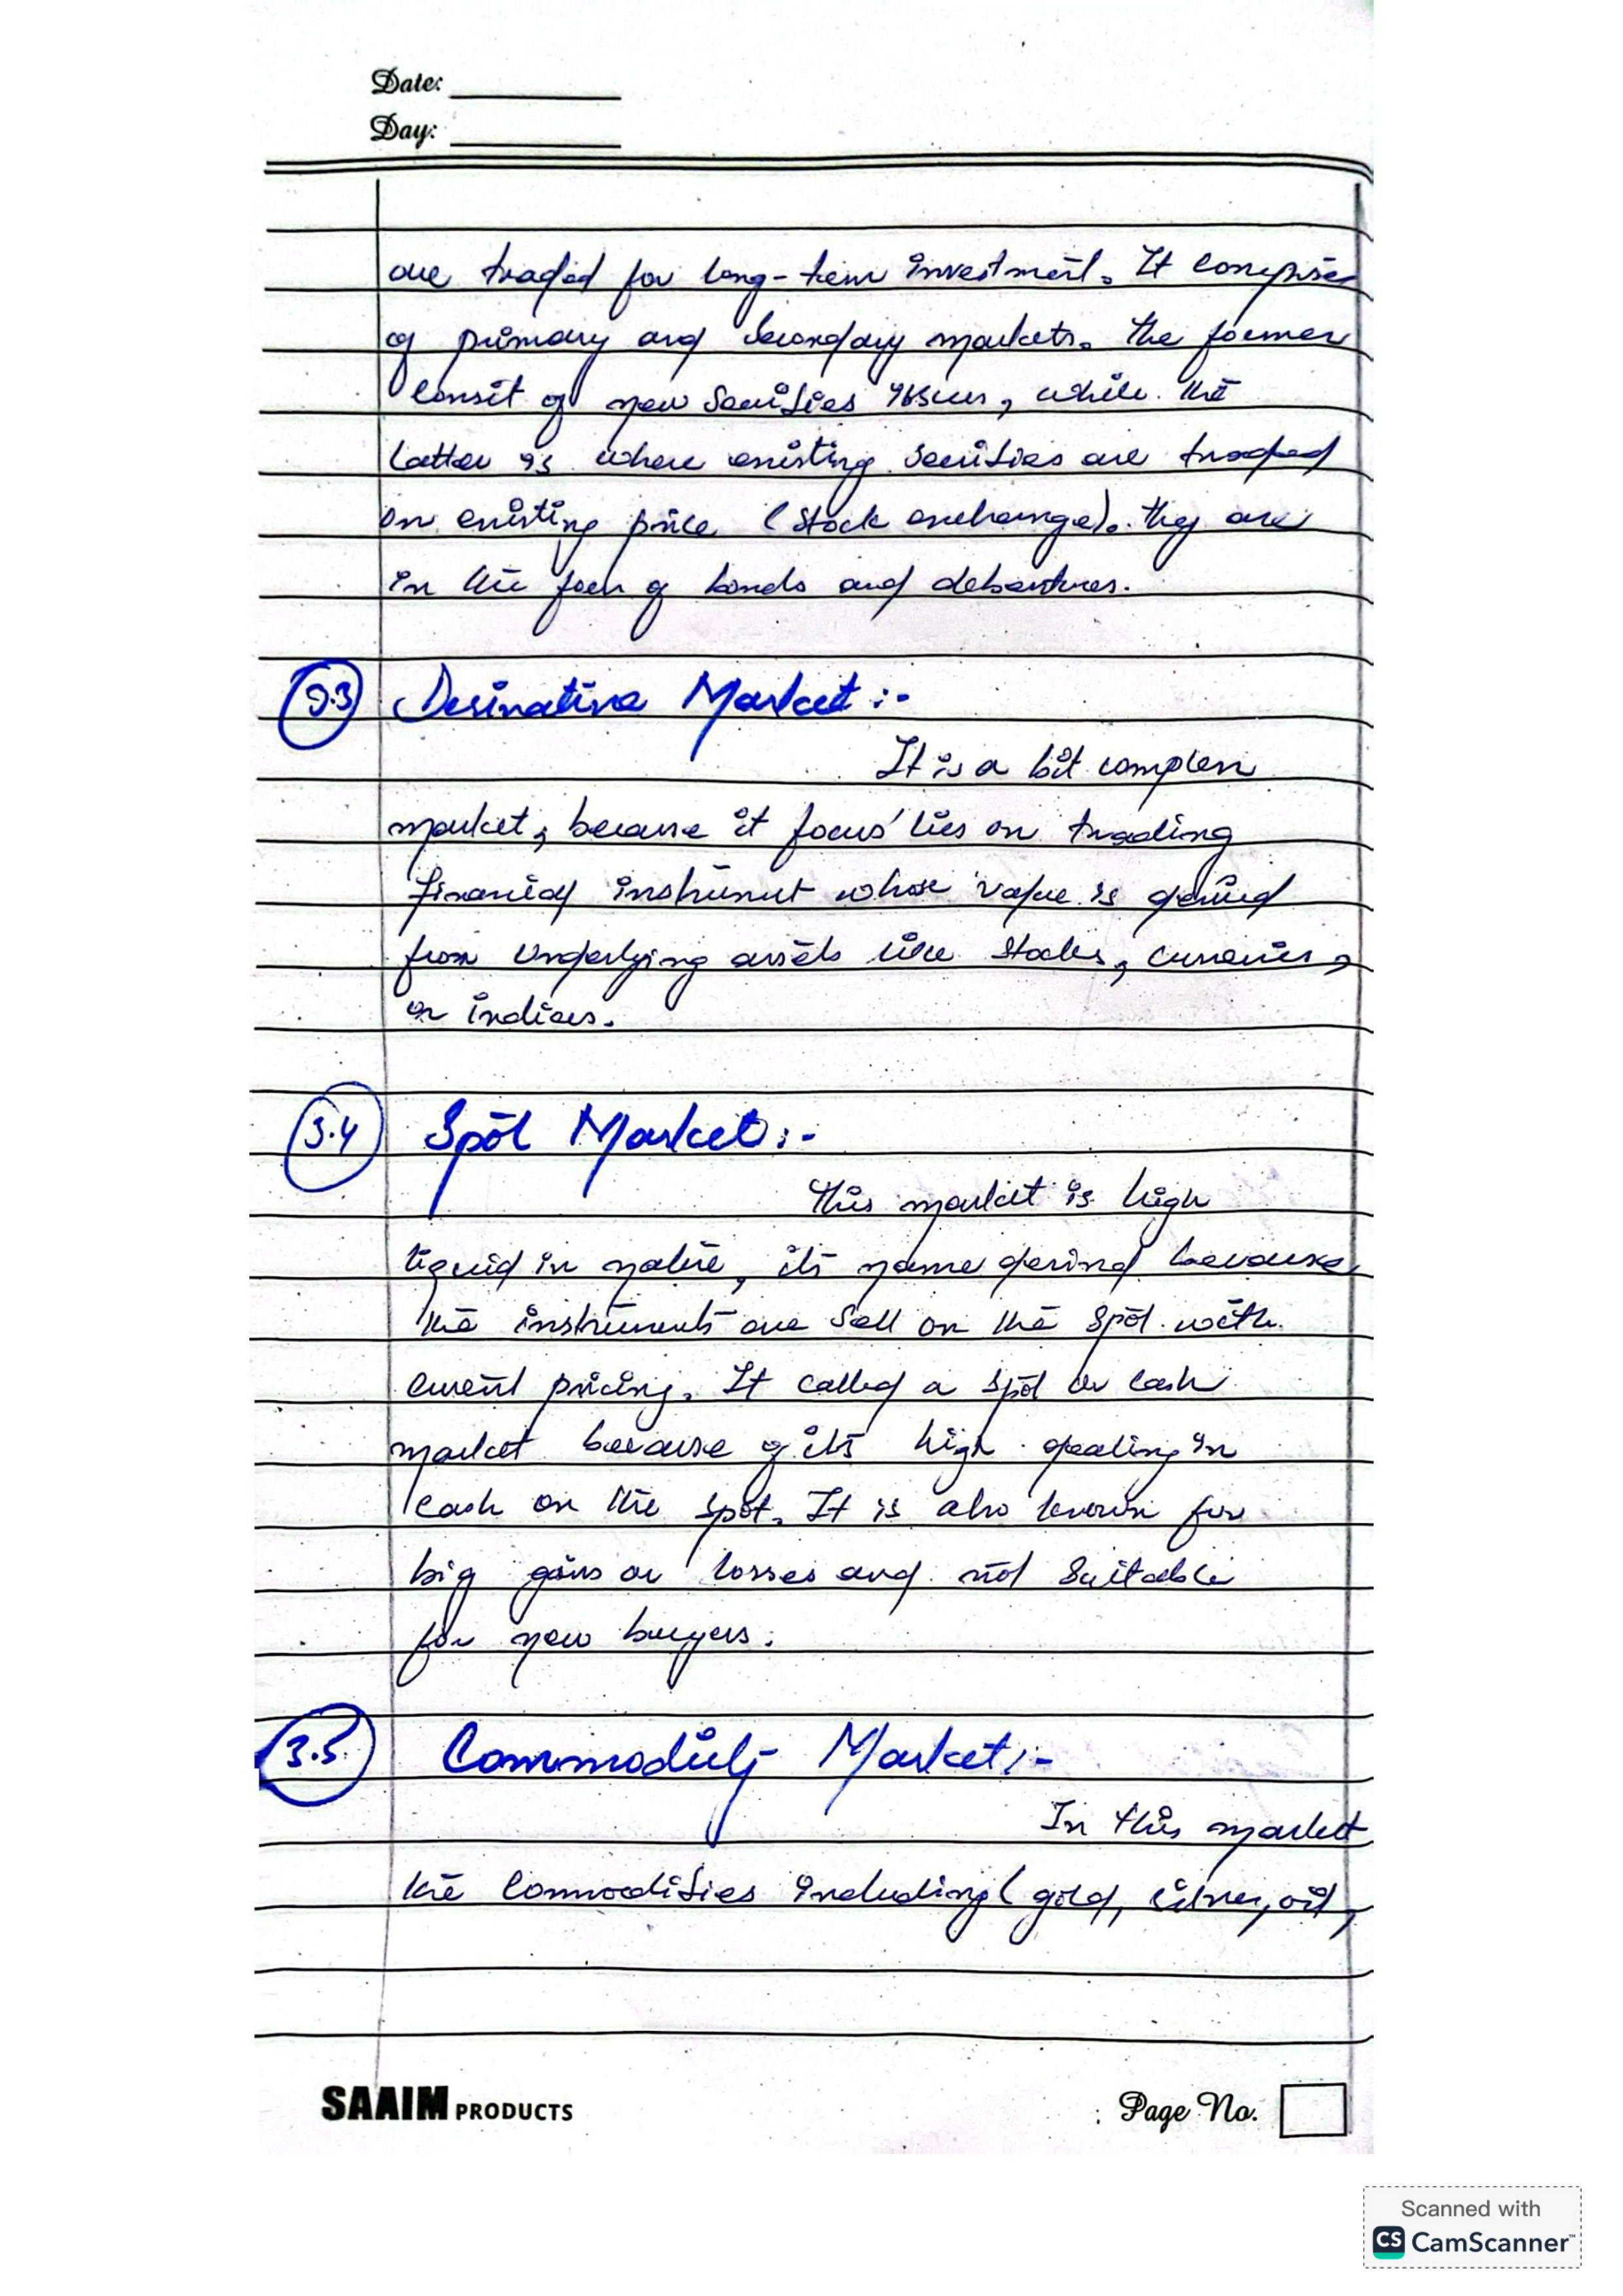 Date:
Day:
are traded for long-term investment. It comprises
of primary and secondary markets. The former
consit of new securities issues, while the
latter is where existing securities are traded
on existing price (stock exchange). they are
in the form of bonds and debentures.
3.3 Derivative Market:-
It is a bit complex
market, because it focus' lies on trading
financial instrument whose value is derived
from underlying assets like stocks, currencies,
or indices.
3.4 Spot Market:-
This market is high
liquid in nature, its name derived because
the instruments are sell on the spot with
current pricing. It called a spot or cash
market because of its high dealing in
cash on the spot. It is also known for
big gains or losses and not suitable
for new buyers.
3.5 Commodity Market:-
In this market
the commodities including (gold, silver, oil,
SAAIM PRODUCTS
Page No.
Scanned with
CS CamScanner™